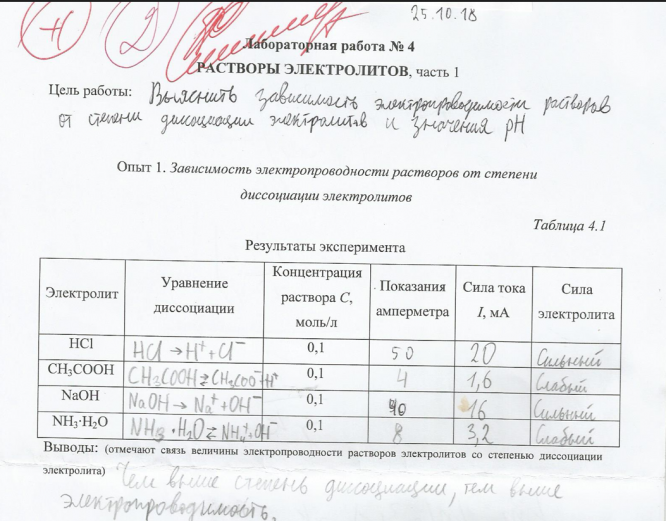 25.10.18
Н Д
Лабораторная работа № 4
РАСТВОРЫ ЭЛЕКТРОЛИТОВ, часть 1
Цель работы: Выяснить зависимость электропроводимости растворов
от степени диссоциации электролитов и значения pH
Опыт 1. Зависимость электропроводности растворов от степени
диссоциации электролитов
Таблица 4.1
Результаты эксперимента
Электролит Уравнение диссоциации Концентрация раствора C, моль/л Показания амперметра Сила тока I, мА Сила электролита
HCl HCl → H⁺ + Cl⁻ 0,1 50 20 Сильный
CH₃COOH CH₃COOH ⇄ CH₃COO⁻ + H⁺ 0,1 4 1,6 Слабый
NaOH NaOH → Na⁺ + OH⁻ 0,1 40 16 Сильный
NH₃·H₂O NH₃·H₂O ⇄ NH₄⁺ + OH⁻ 0,1 8 3,2 Слабый
Выводы: (отмечают связь величины электропроводности растворов электролитов со степенью диссоциации
электролита) Чем выше степень диссоциации, тем выше
электропроводимость.